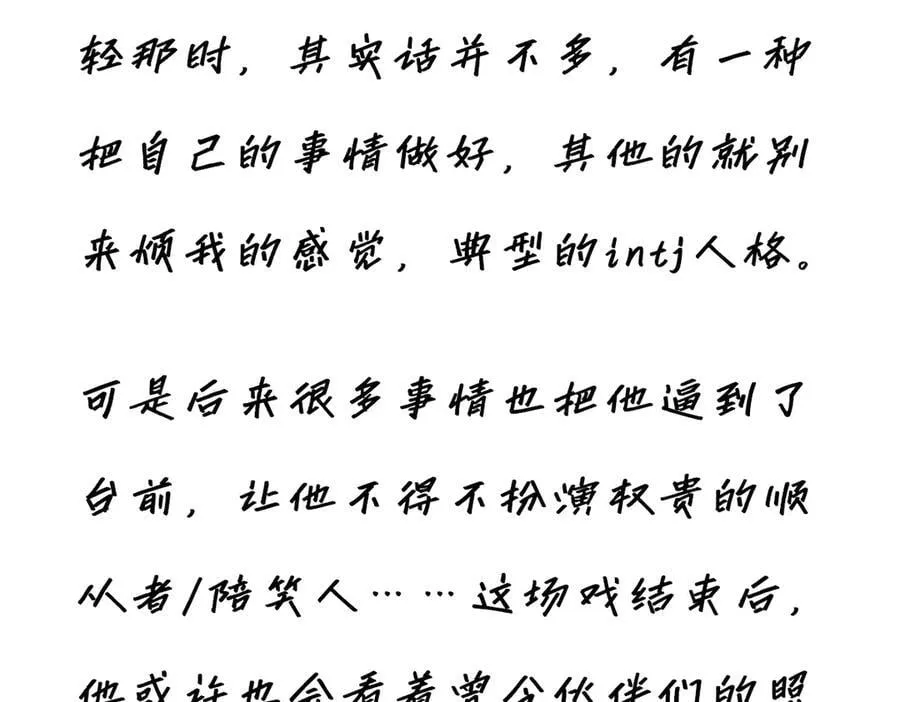 轻那时，其实话并不多，有一种
把自己的事情做好，其他的就别
来烦我的感觉，典型的intj人格。
可是后来很多事情也把他逼到了
台前，让他不得不扮演权贵的顺
从者/陪笑人……这场戏结束后，
他或许也会看着曾今伙伴们的照